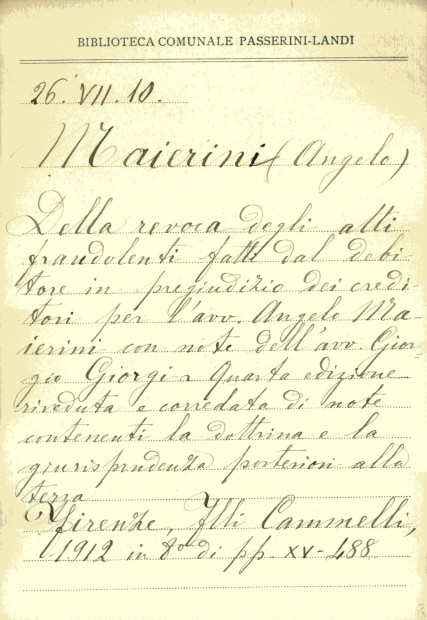 BIBLIOTECA COMUNALE PASSERINI-LANDI
26. VII. 10.
Maierini (Angelo)
Della revoca degli atti
fraudolenti fatti dal debi-
tore in pregiudizio dei credi-
tori per l'avv. Angelo Ma-
ierini con note dell'avv. Gior-
gio Giorgi - Quarta edizione
riveduta e corredata di note
contenenti la dottrina e la
giurisprudenza posteriori alla
terza
Firenze, Flli Cammelli,
1912 in 8° di pp. XV-488